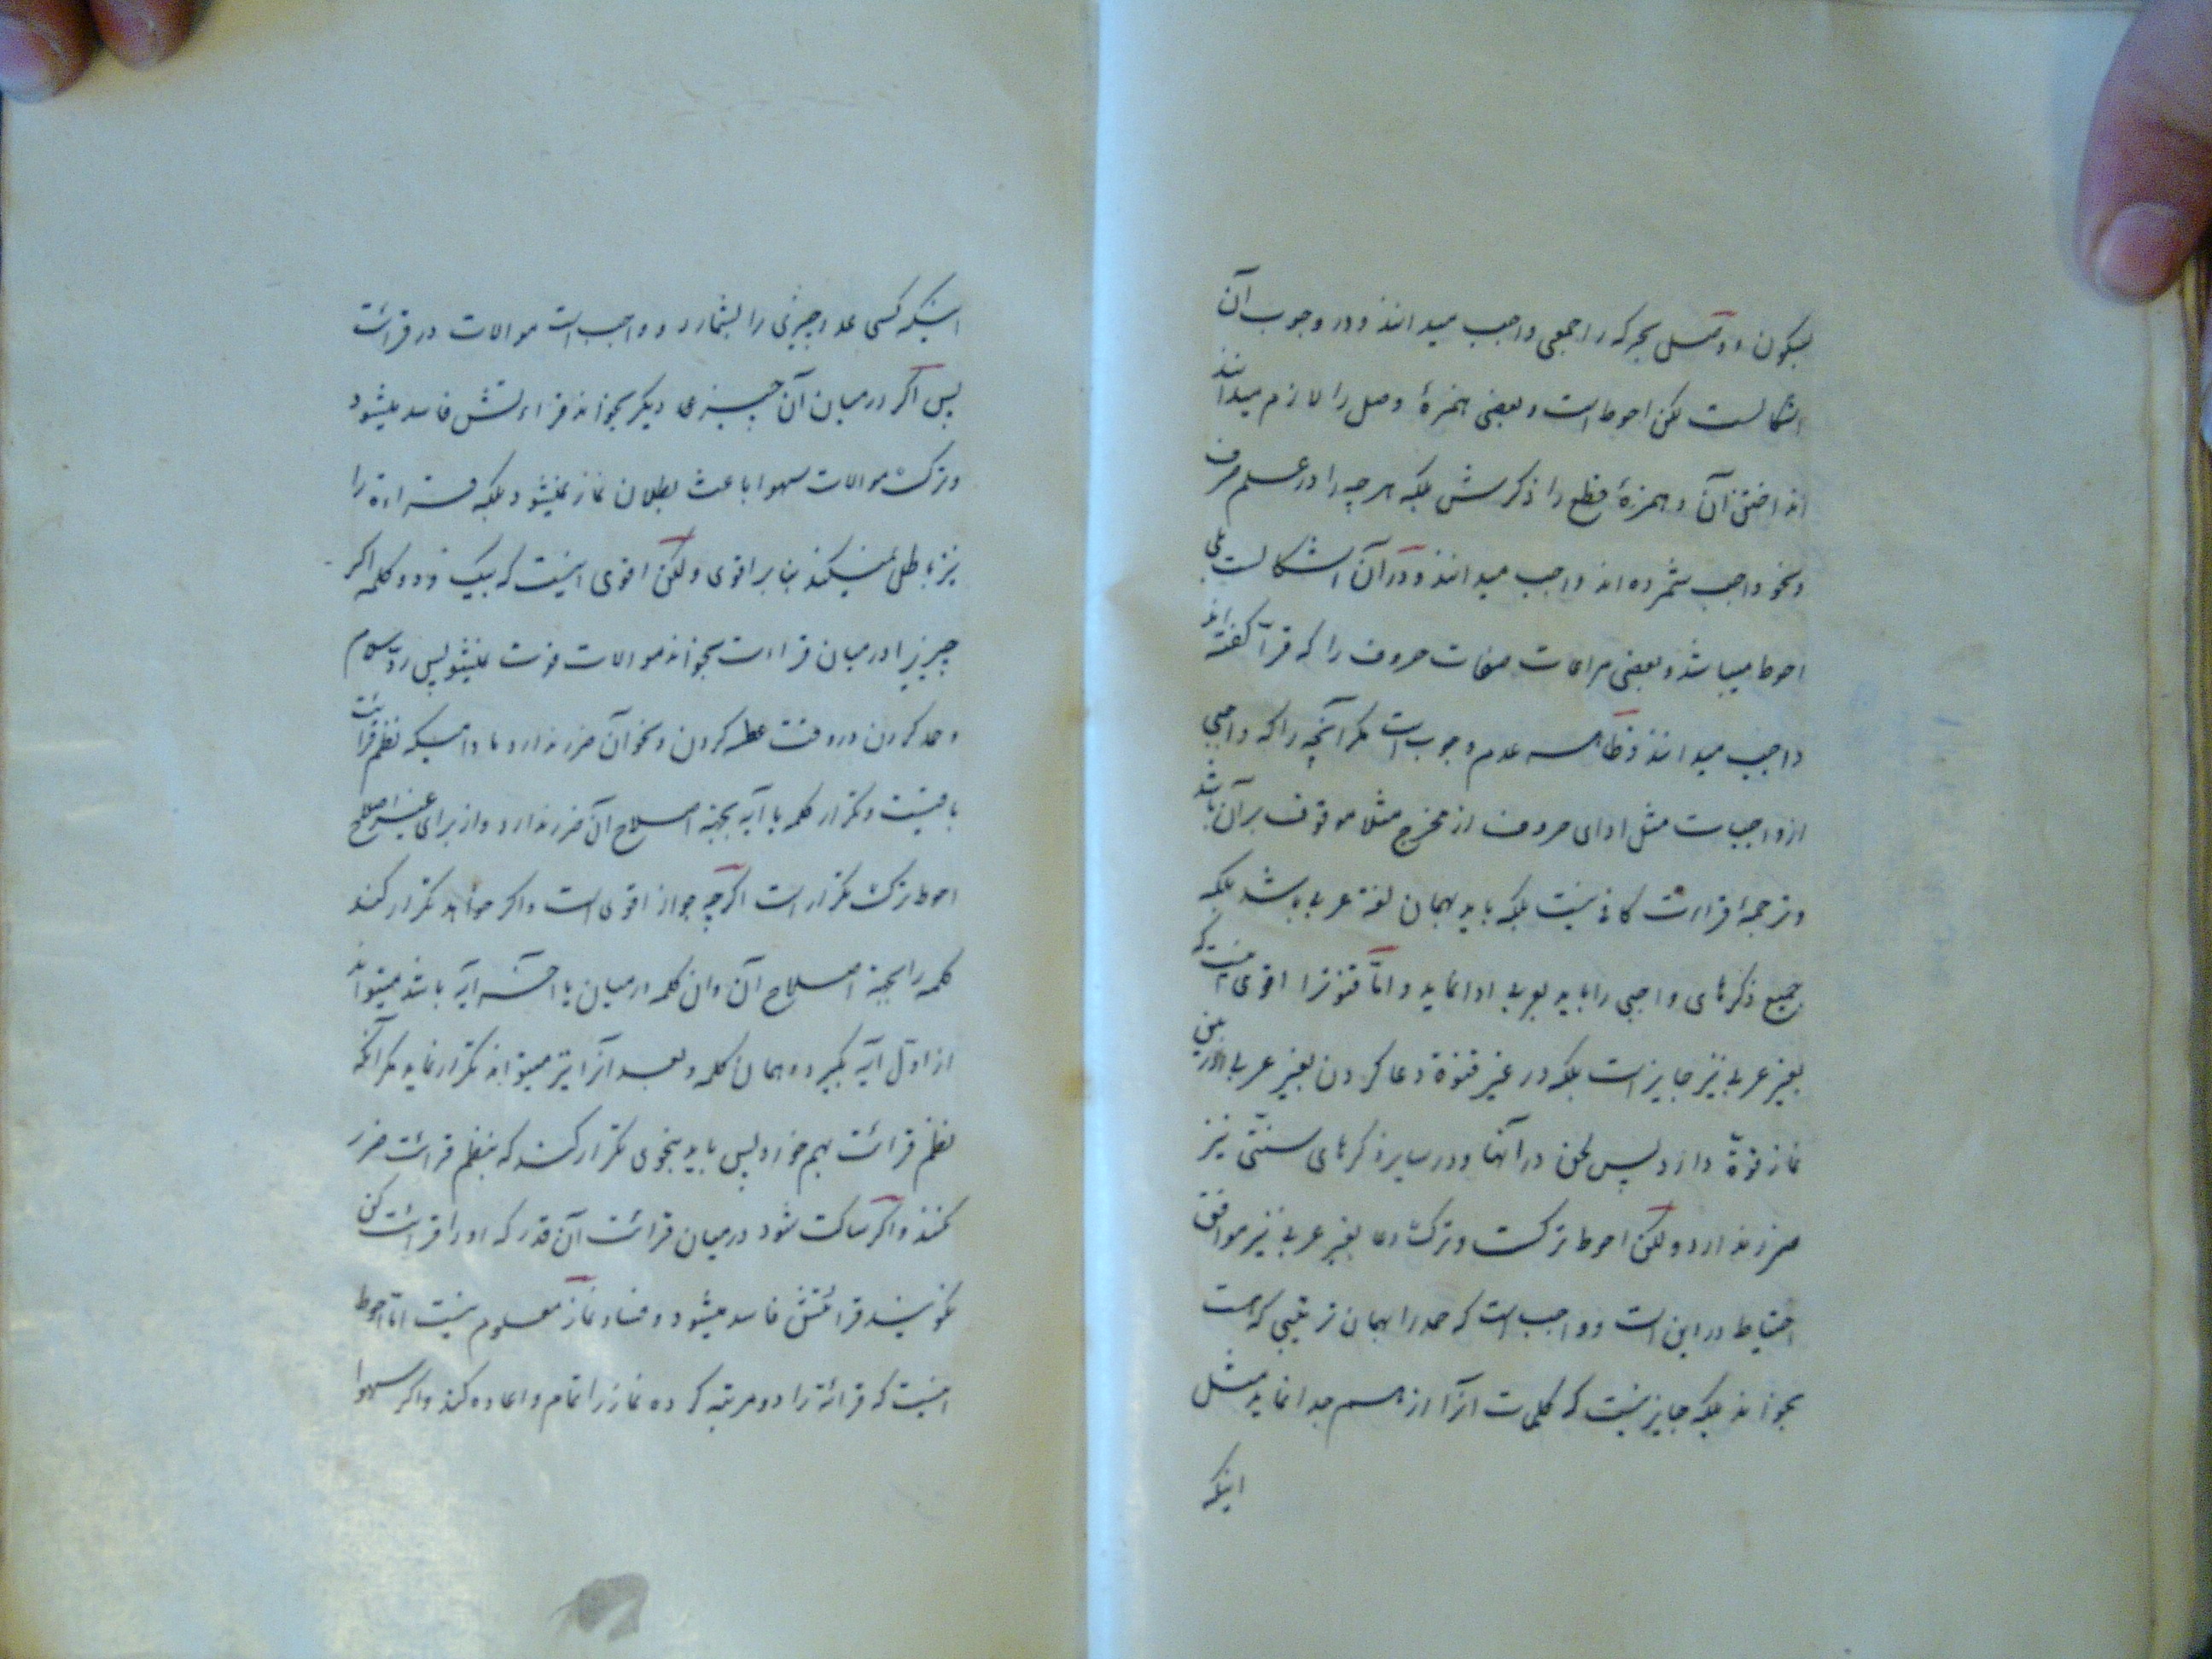 بسکون و وصل بحرکه را جمعی واجب میدانند و در وجوب آن
اشکالست لکن احوط است و بعضی همزهٔ وصل را لازم میدانند
انداختن آن و همزهٔ قطع را ذکرش بلکه هر چه را در علم صرف
و نحو واجب شمرده اند واجب میدانند و در آن اشکالست بلی
احوط میباشد و بعضی مراعات صفات حروف را که قرآ گفته اند
واجب میدانند و ظاهر عدم وجوب است مگر آنچه را که واجبی
از واجبات مثل ادای حروف از مخرج مثلا موقوف بر آن باشد
و ترجمهٔ قراءت کافی نیست بلکه باید بهمان لغة عربی باشد بلکه
جمیع ذکرهای واجبی را باید بعربی ادا نماید و اما قنوترا اقوی اینست که
بغیر عربی نیز جایز است بلکه در غیر قنوة دعا کردن بغیر عربی در
نماز قوة دارد پس لحن در آنها و در سایر ذکرهای سنتی نیز
ضرر ندارد و لکن احوط ترکست و ترک دعا بغیر عربی نیز موافق
احتیاط در این است و واجب است که حمد را بهمان ترتیبی که هست
بخواند بلکه جایز نیست که کلمات آنرا از هم جدا نماید مثل
اینکه
اینکه کسی عدد چیزی را بشمارد و واجب است موالات در قرائت
پس اگر در میان آن چیزی دیگر بخواند قراءتش فاسد میشود
و ترک موالات سهوا باعث بطلان نماز نمیشود بلکه قراءة را
نیز باطل نمیکند بنا بر اقوی و لکن اقوی اینست که بیک و دو کلمه اگر
چیزیرا در میان قراءت بخواند موالات فوت نمیشود پس رد سلام
و حمد کردن در وقت عطسه کردن و نحو آن ضرر ندارد مادامیکه نظم قرائت
باقیست و تکرار کلمه یا آیه بجهة اصلاح آن ضرر ندارد و از برای غیر اصلاح
احوط ترک تکرار است اگر چه جواز اقوی است و اگر خواهد تکرار کند
کلمه را بجهة اصلاح آن و آن کلمه در میان یا آخر آیه باشد میتواند
از اول آیه بگیرد و همان کلمه و بعد آنرا نیز میتواند تکرار نماید مگر آنکه
نظم قرائت بهم خورد پس باید بنحوی تکرار کند که بنظم قرائت ضرر
نکند و اگر ساکت شود در میان قرائت آن قدر که او را قرائت کن
نگویند قرائتش فاسد میشود و فساد نماز معلوم نیست اما احوط
اینست که قرائة را دو مرتبه کرده نماز را تمام و اعاده کند و اگر سهوا